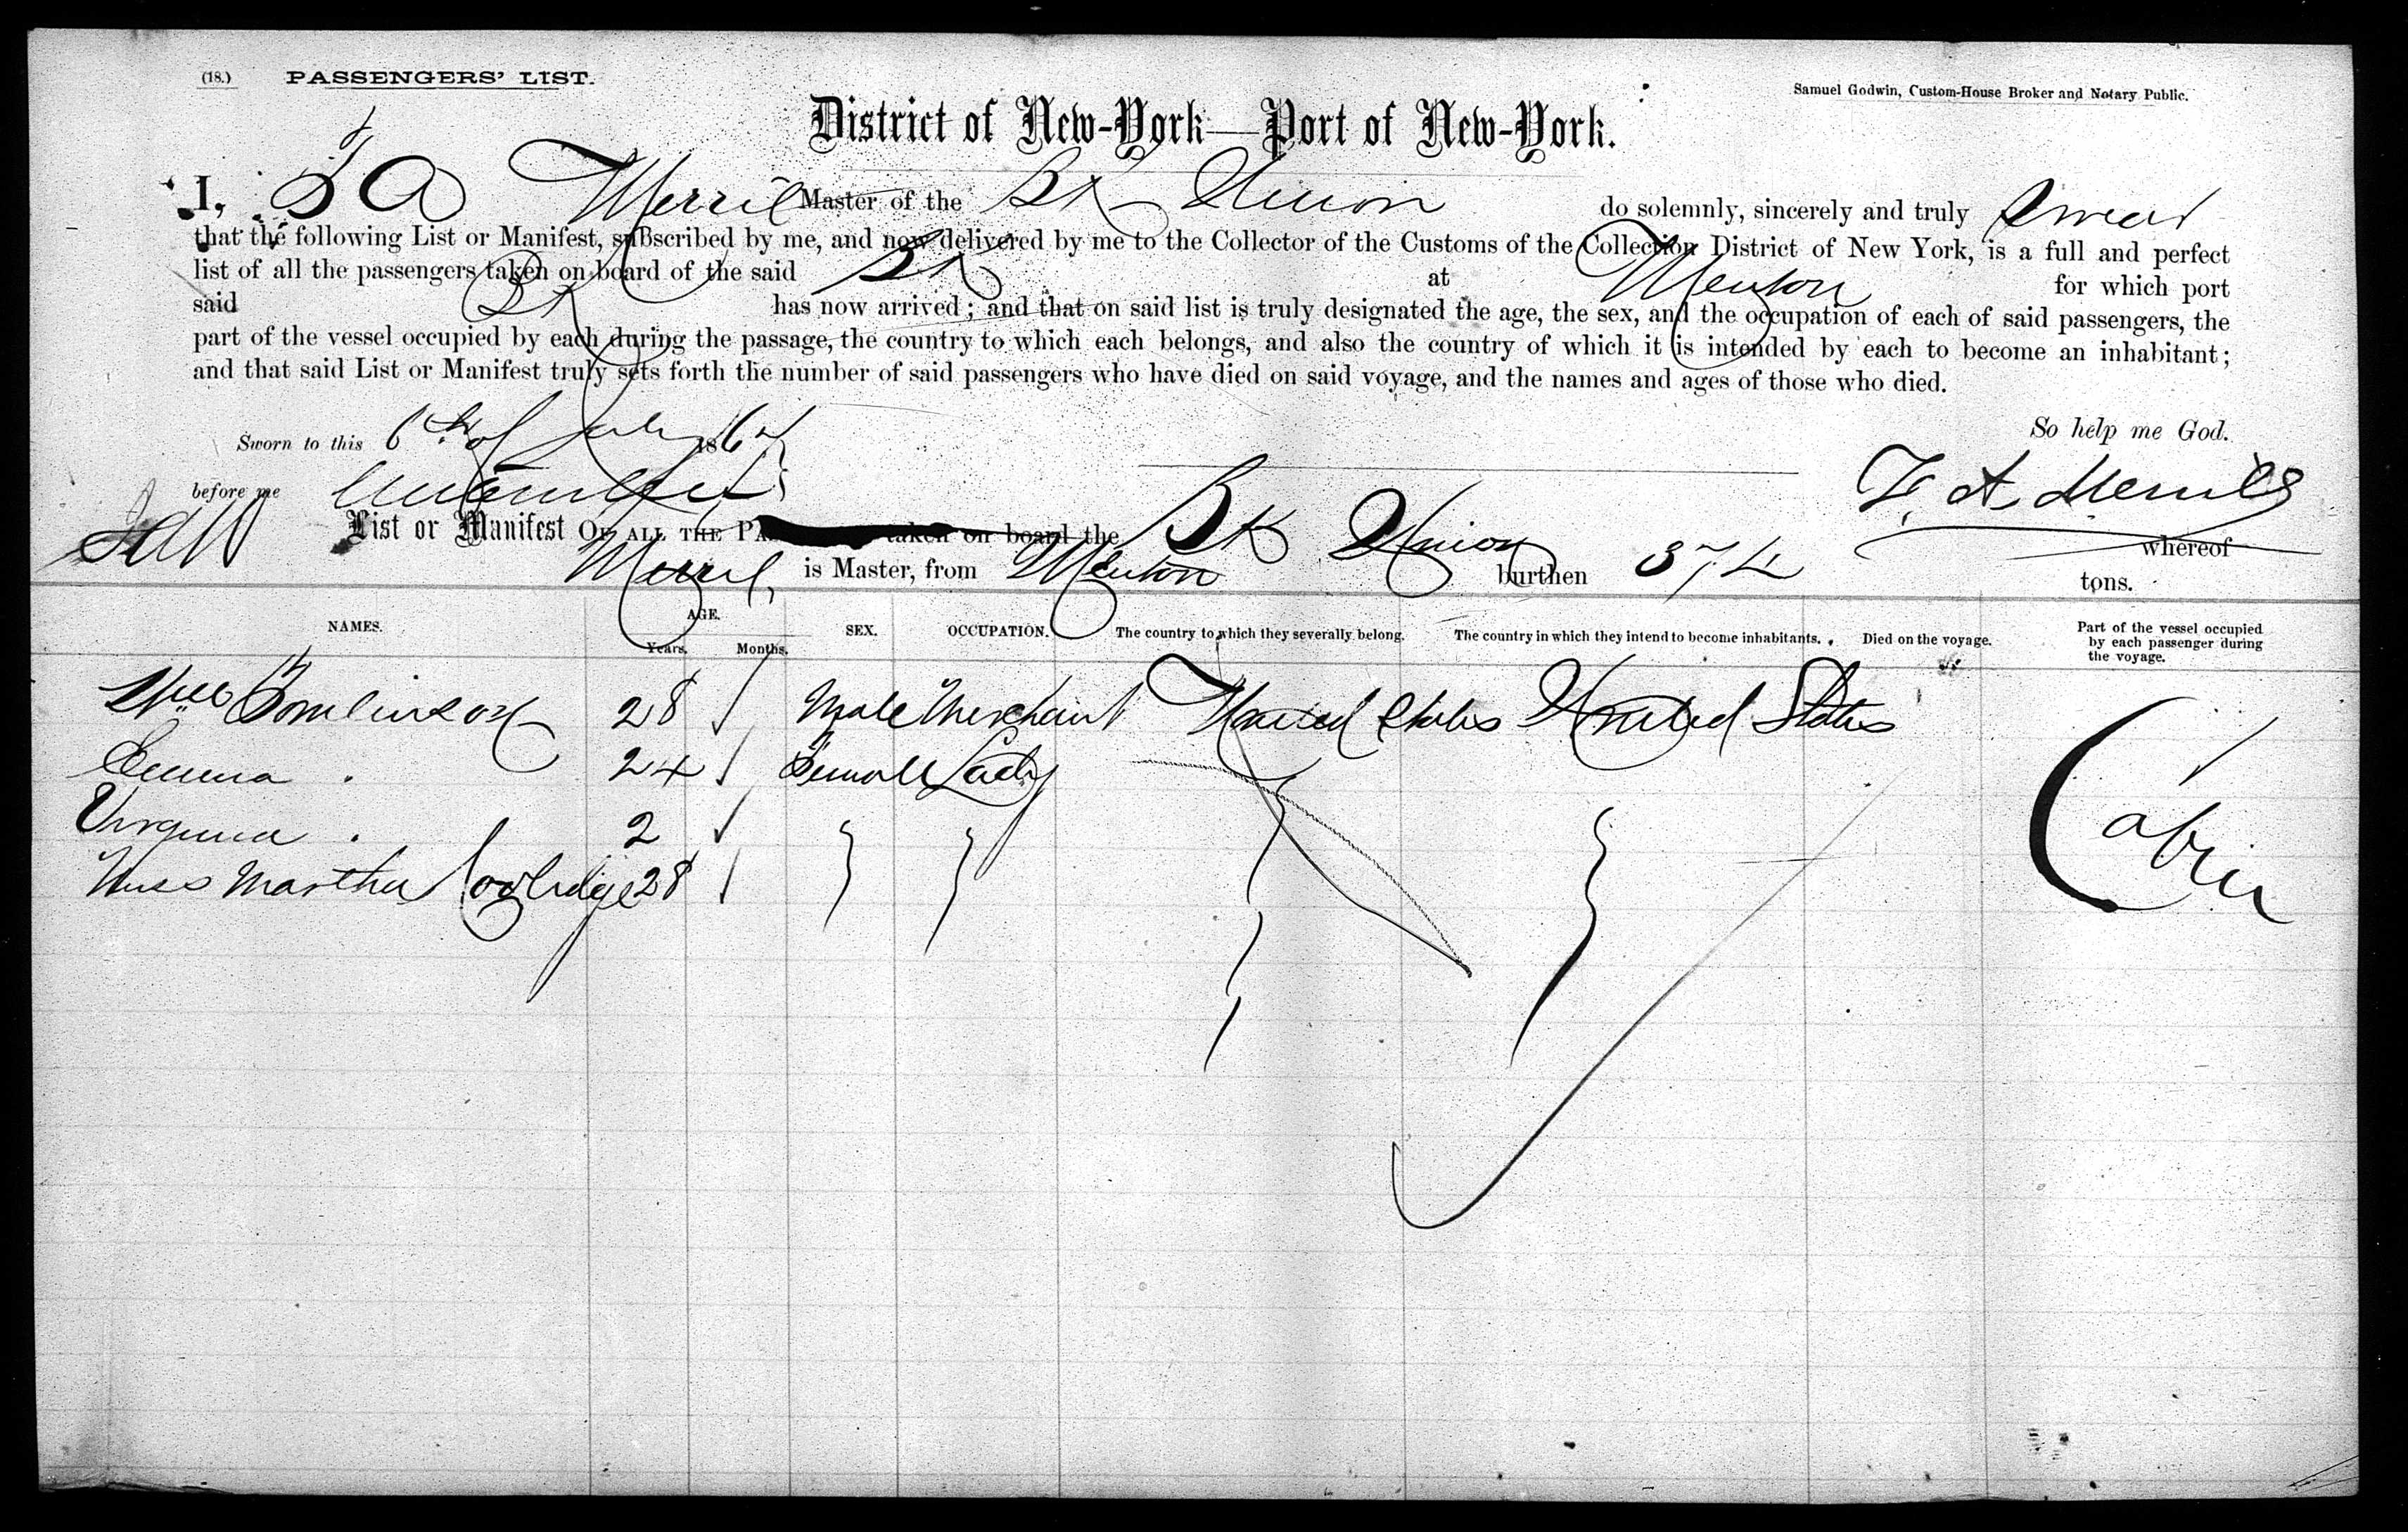 (18.) PASSENGERS' LIST.
Samuel Godwin, Custom-House Broker and Notary Public.
District of New-York—Port of New-York.
I, F A Merril Master of the Bk Union do solemnly, sincerely and truly Swear
that the following List or Manifest, subscribed by me, and now delivered by me to the Collector of the Customs of the Collection District of New York, is a full and perfect
list of all the passengers taken on board of the said Bk at Menton for which port
said Bk has now arrived; and that on said list is truly designated the age, the sex, and the occupation of each of said passengers, the
part of the vessel occupied by each during the passage, the country to which each belongs, and also the country of which it is intended by each to become an inhabitant;
and that said List or Manifest truly sets forth the number of said passengers who have died on said voyage, and the names and ages of those who died.
So help me God.
Sworn to this 6th of July 186
before me
F. A. Merrill
List or Manifest OF ALL THE PA taken on board the Bk Union whereof
Merril, is Master, from Menton burthen 374 tons.
NAMES. AGE. Years. Months. SEX. OCCUPATION. The country to which they severally belong. The country in which they intend to become inhabitants. Died on the voyage. Part of the vessel occupied by each passenger during the voyage.
Tomlinson 28 Male Merchant United States United States
Emma . 24 Female Lady
Virginia . 2
Miss Martha Coolridge 28
Cabin